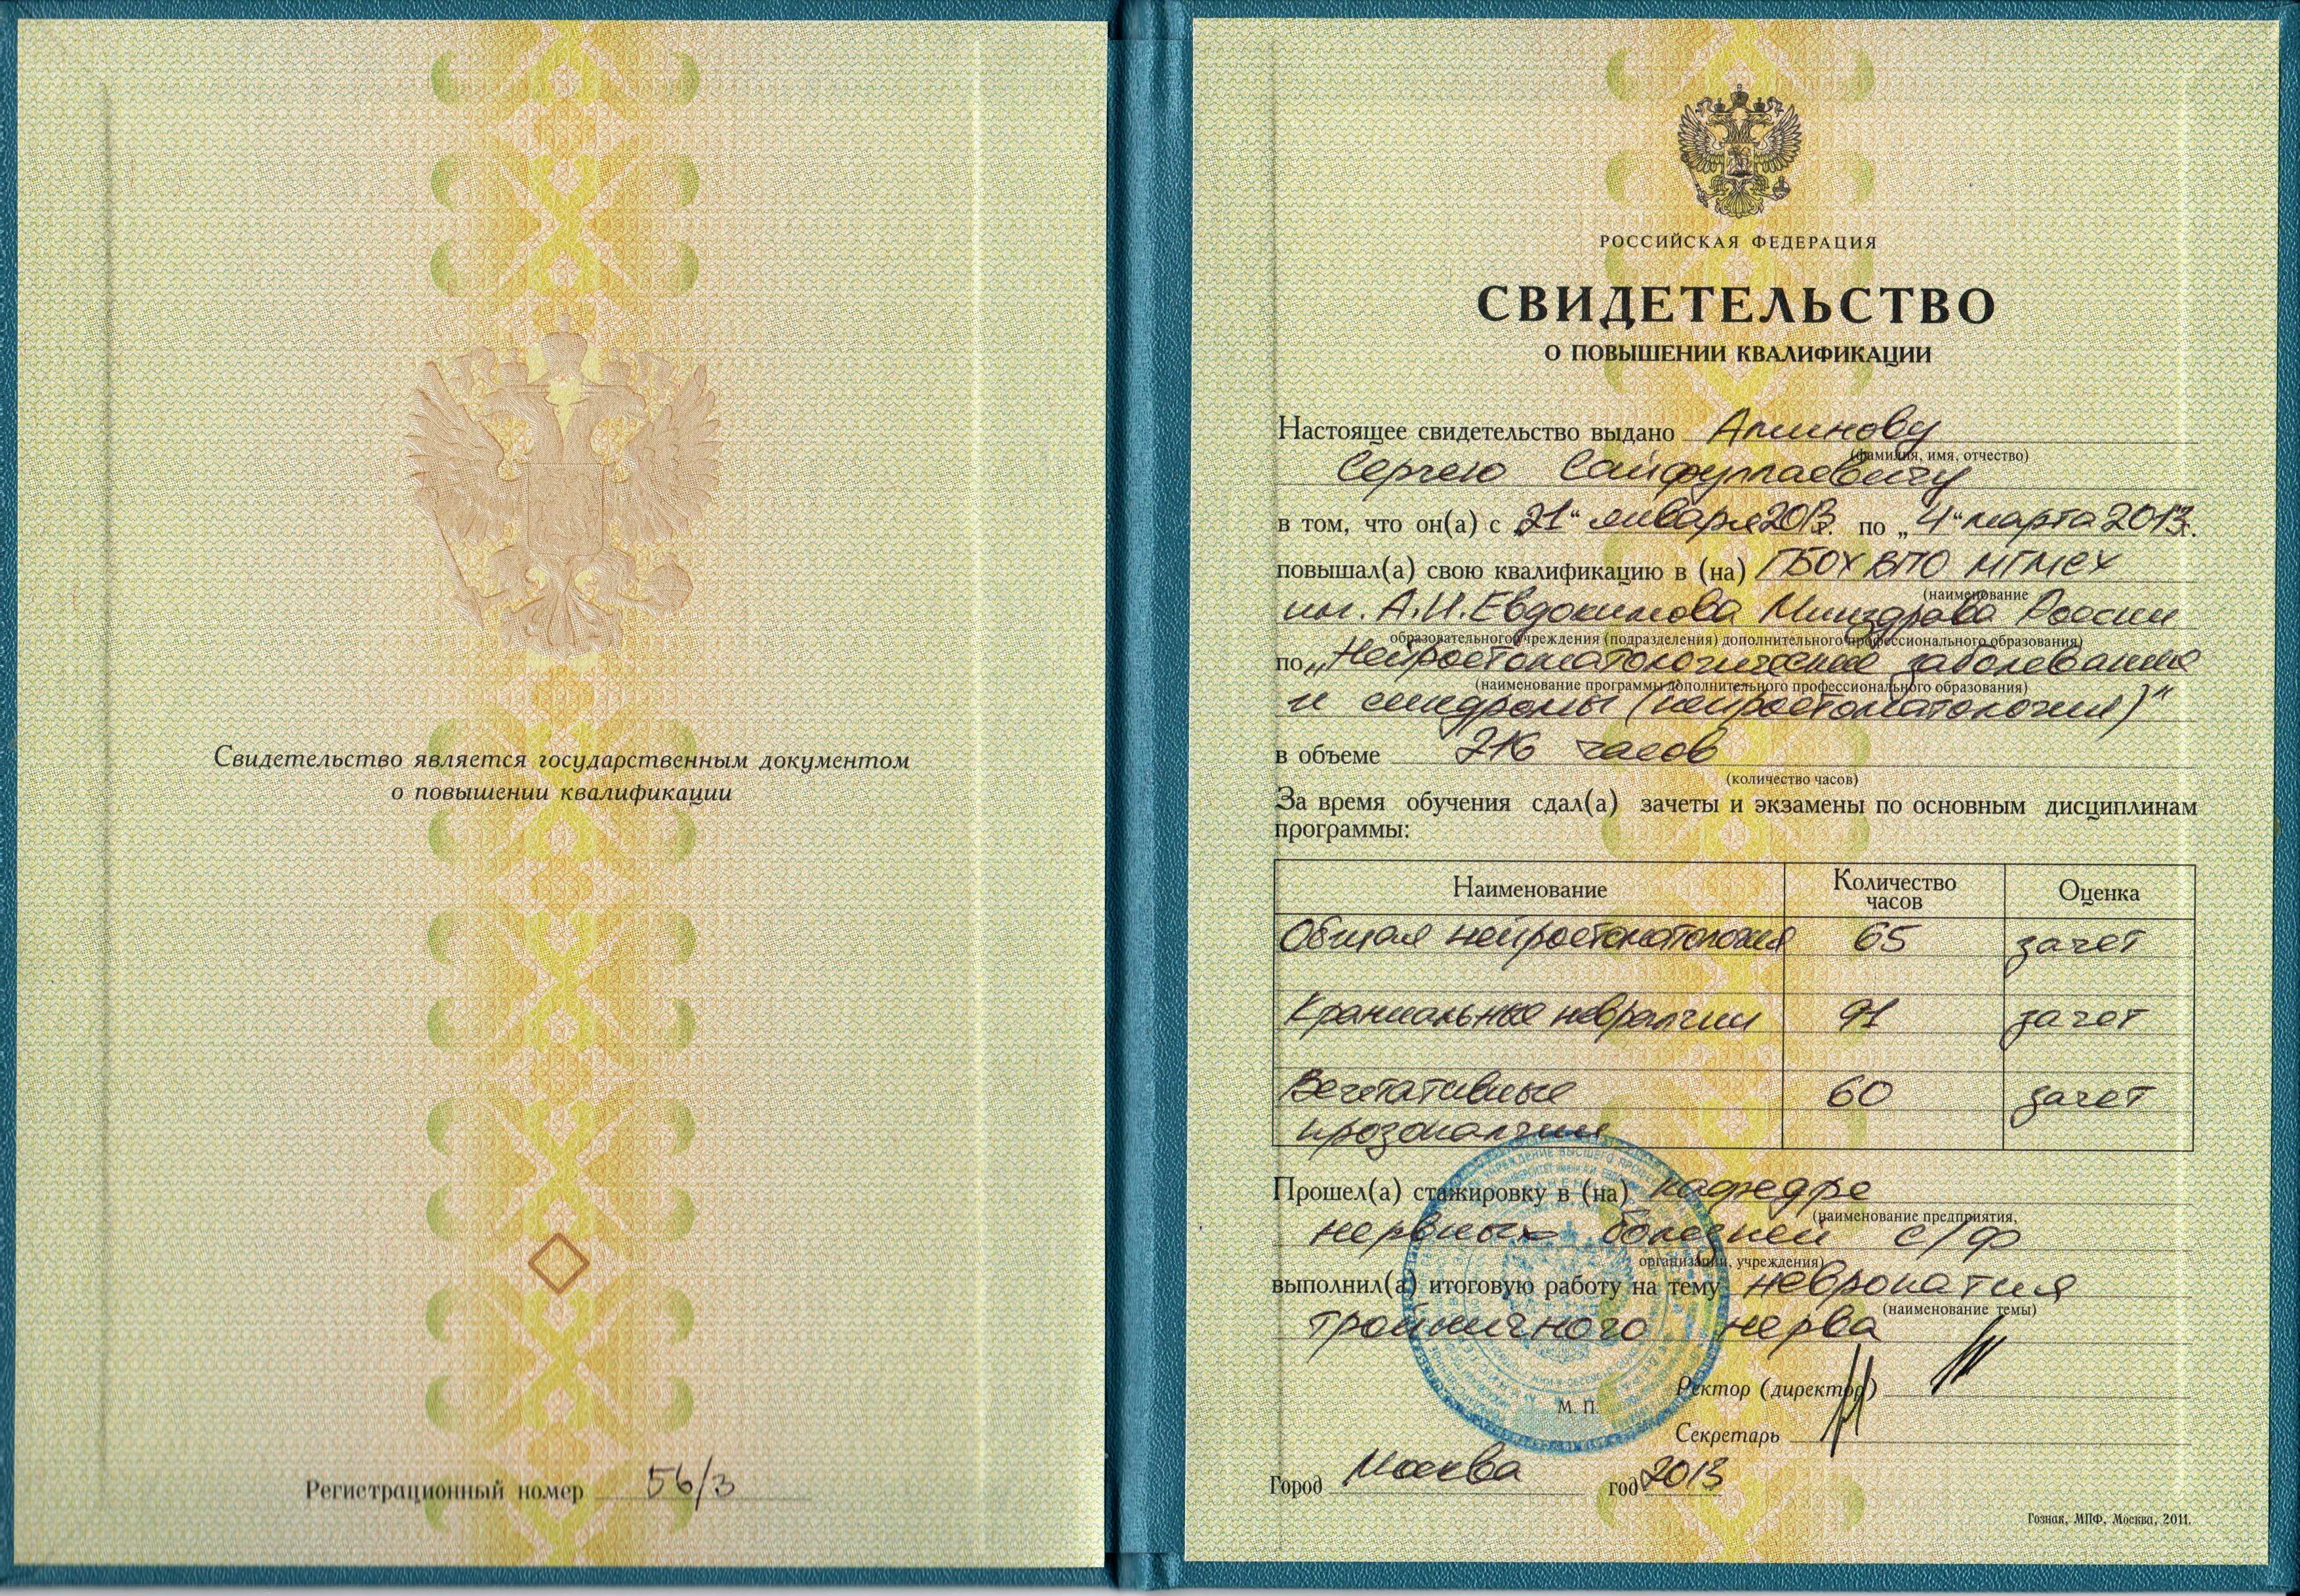 Свидетельство является государственным документом
о повышении квалификации
Регистрационный номер 56/3
РОССИЙСКАЯ ФЕДЕРАЦИЯ
СВИДЕТЕЛЬСТВО
О ПОВЫШЕНИИ КВАЛИФИКАЦИИ
Настоящее свидетельство выдано Аминову
(фамилия, имя, отчество)
Сергею Сайфуллаевичу
в том, что он(а) с „21“ января 2013 г. по „4“ марта 2013 г.
повышал(а) свою квалификацию в (на) ГБОУ ВПО МГМСУ
(наименование
им. А.И.Евдокимова Минздрава России
образовательного учреждения (подразделения) дополнительного профессионального образования)
по „Нейростоматологические заболевания
(наименование программы дополнительного профессионального образования)
и синдромы (нейростоматология)"
в объеме 216 часов
(количество часов)
За время обучения сдал(а) зачеты и экзамены по основным дисциплинам
программы:
Наименование Количество часов Оценка
Общая нейростоматология 65 зачет
Краниальные невралгии 91 зачет
Вегетативные 60 зачет
прозопалгии
Прошел(а) стажировку в (на) кафедре
(наименование предприятия,
нервных болезней с/ф
организации, учреждения)
выполнил(а) итоговую работу на тему невропатия
(наименование темы)
тройничного нерва
Ректор (директор)
М. П.
Секретарь
Город Москва год 2013
Гознак, МПФ, Москва, 2011.